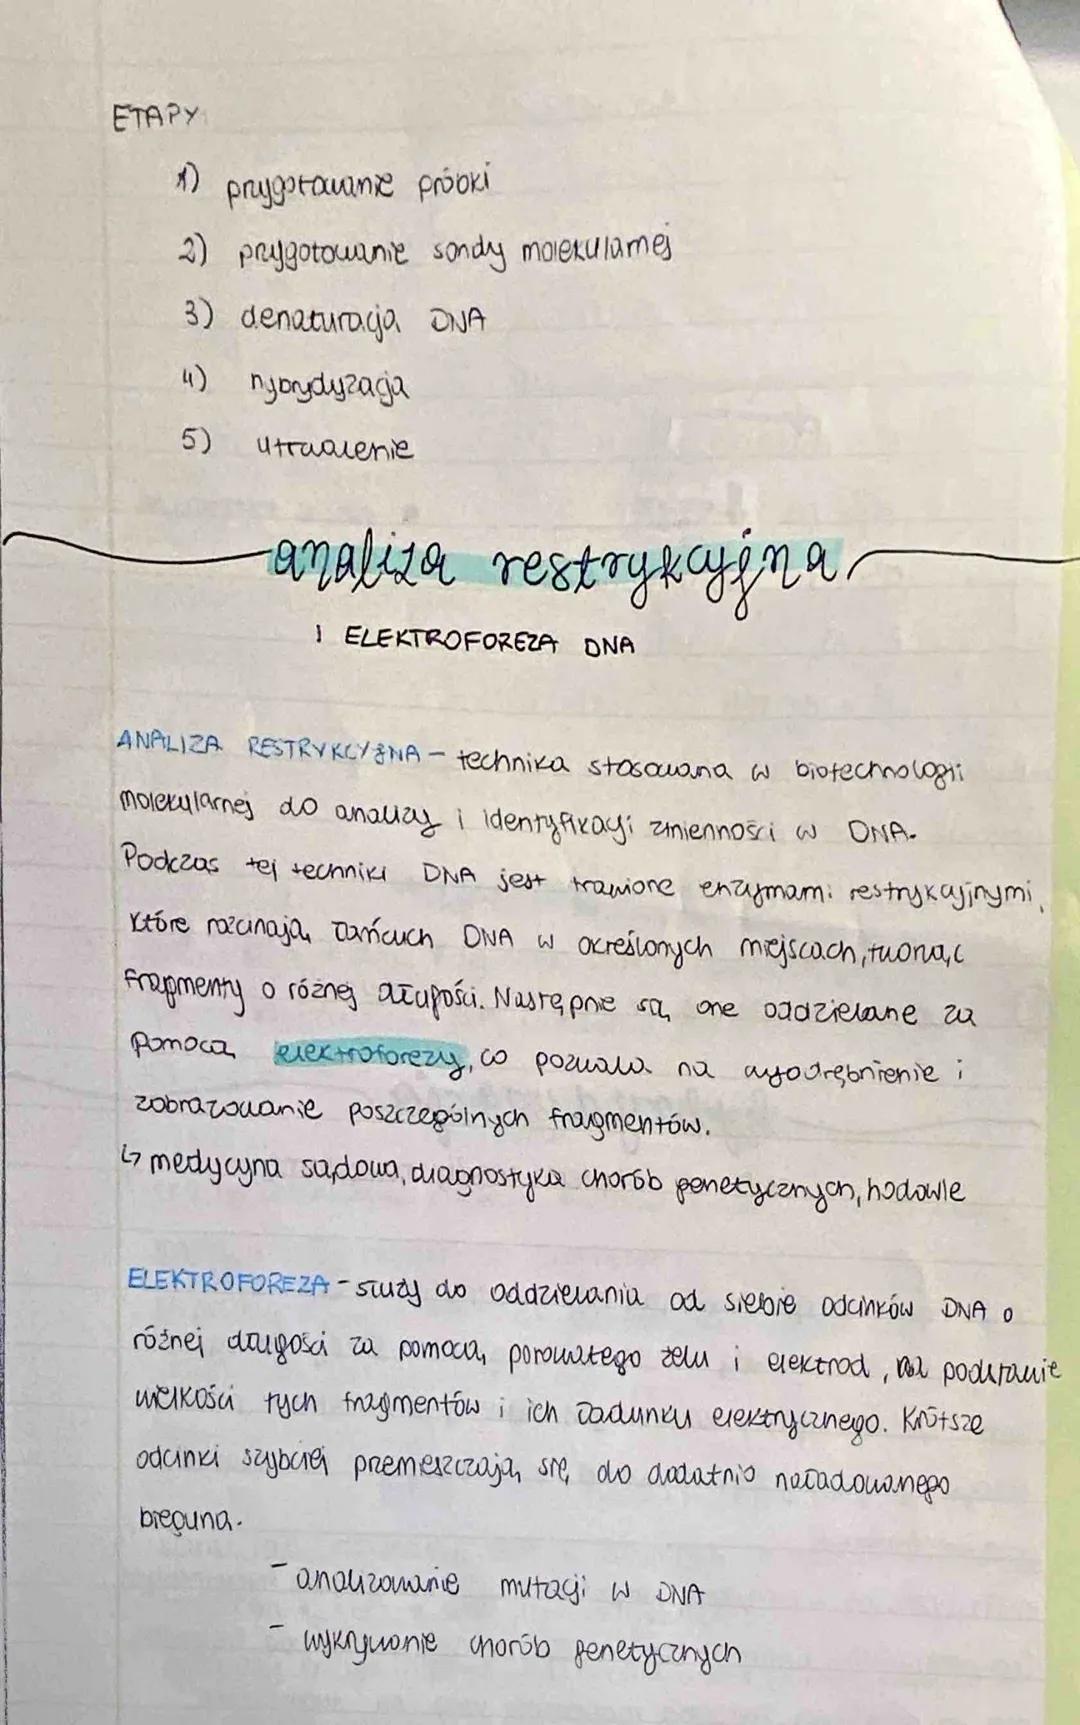 ETAPY
1) przygotowanie próbki
2) przygotowanie sondy molekularnej
3) denaturacja DNA
4) hybrydyzacja
5) utrwalenie
analiza restrykcyjna
I ELEKTROFOREZA DNA
ANALIZA RESTRYKCYJNA - technika stosowana w biotechnologii
molekularnej do analizy i identyfikacji zmienności w DNA.
Podczas tej techniki DNA jest trawione enzymami restrykcyjnymi,
które rozcinają łańcuch DNA w określonych miejscach, tworząc
fragmenty o różnej długości. Następnie są one oddzielane za
pomocą elektroforezy, co pozwala na wyodrębnienie i
zobrazowanie poszczególnych fragmentów.
↳ medycyna sądowa, diagnostyka chorób genetycznych, hodowle
ELEKTROFOREZA - służy do oddzielania od siebie odcinków DNA o
różnej długości za pomocą porowatego żelu i elektrod, na podstawie
wielkości tych fragmentów i ich ładunku elektrycznego. Krótsze
odcinki szybciej przemieszczają się do dodatnio naładowanego
bieguna.
- analizowanie mutacji w DNA
- wykrywanie chorób genetycznych